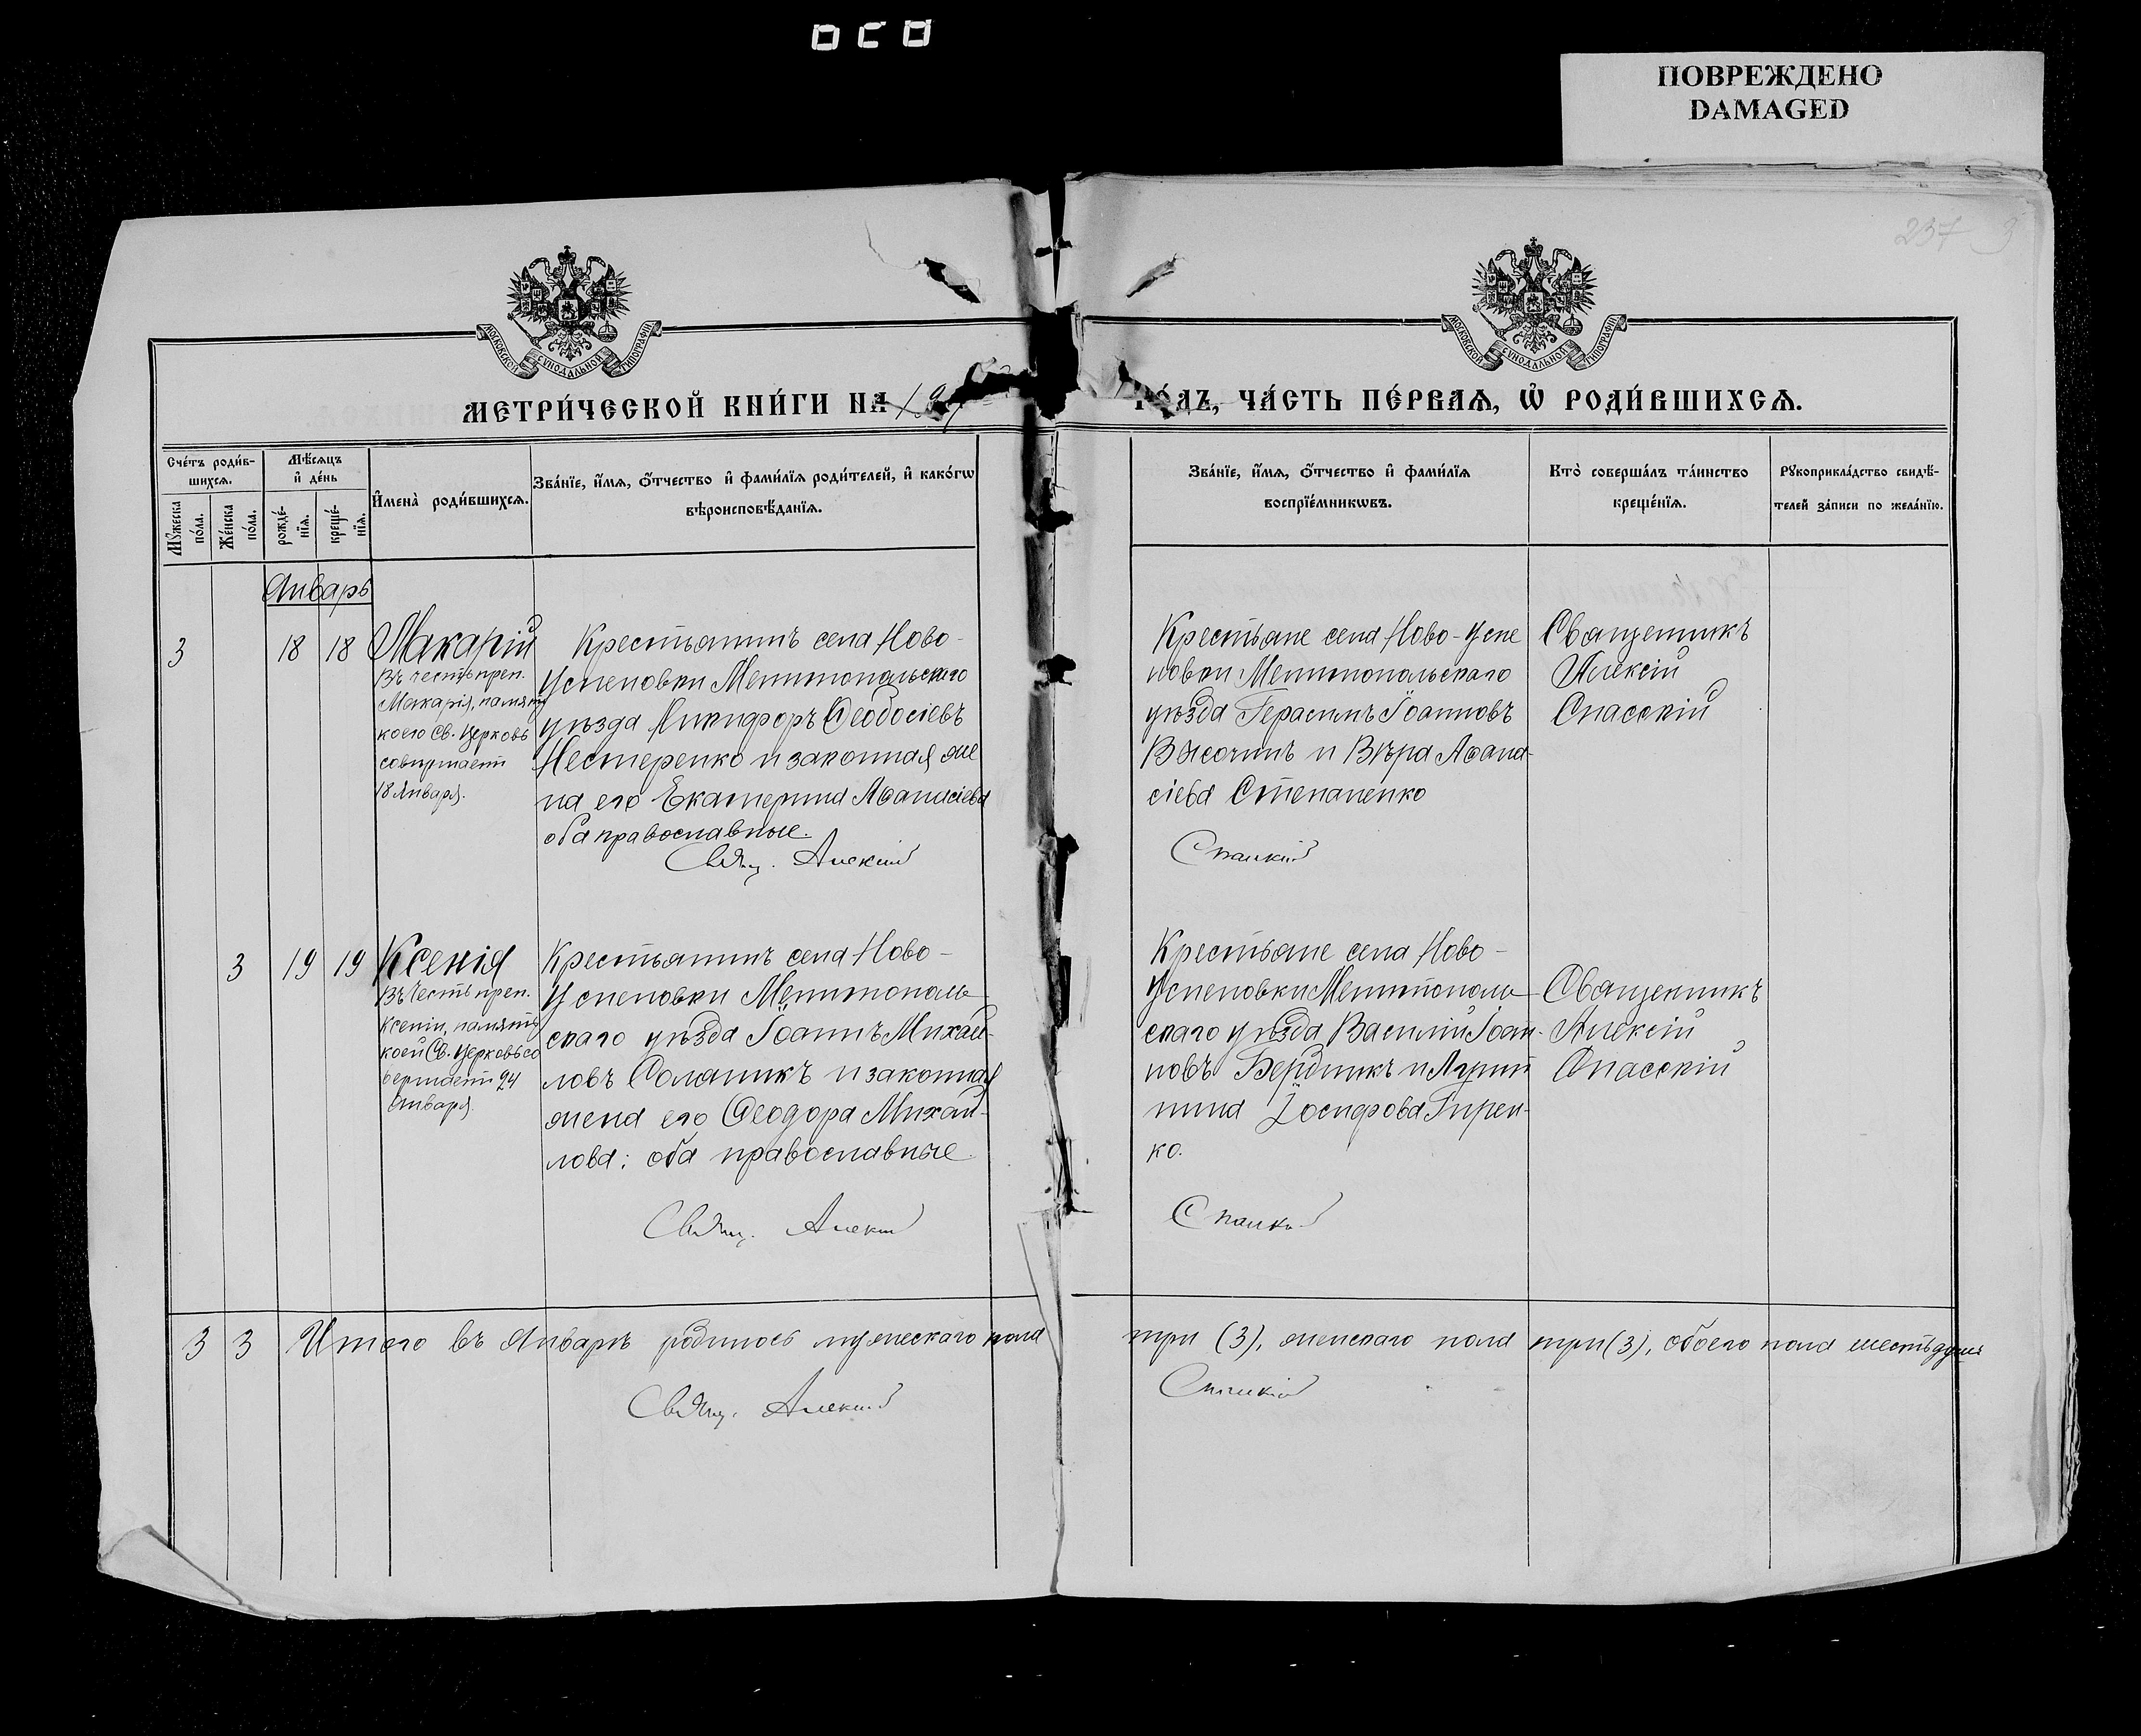 ПОВРЕЖДЕНО
DAMAGED
237 3
МОСКОВСКОЙ СѴНОДАЛЬНОЙ ТИПОГРАФІИ
МОСКОВСКОЙ СѴНОДАЛЬНОЙ ТИПОГРАФІИ
МЕТРИ́ЧЕСКОЙ КНИ́ГИ НА
ГО́ДЪ, ЧА́СТЬ ПЕ́РВАѦ, Ѡ҆ РОДИ́ВШИХСѦ.
Сче́тъ роди́в-
шихсѧ.
Мꙋ́жеска по́ла.
Же́нска по́ла.
Мѣ́сѧцъ
и҆ де́нь
рожде́-нїѧ.
креще́-нїѧ.
И҆мена̀ роди́вшихсѧ.
Зва́нїе, и҆́мѧ, ѻ҆́тчество и҆ фами́лїѧ роди́телей, и҆ како́гѡ
вѣроисповѣ́данїѧ.
Зва́нїе, и҆́мѧ, ѻ҆́тчество и҆ фами́лїѧ
воспрїе́мникѡвъ.
Кто̀ соверша́лъ та́инство
креще́нїѧ.
Рꙋкоприкла́дство свидѣ́-
телей за́писи по жела́нїю.
Январь
3
18 18
Макарій
Въ честь преп.
Макарія, память
коего Св. Церковь
совершаетъ
18 Января.
Крестьянинъ села Ново-
Успеновки Мелитопольскаго
уѣзда Никифоръ Ѳеодосіевъ
Нестеренко и законная же
на его Екатерина Аѳанасіева
оба православные.
Свящ. Алексій
Крестьяне села Ново-Успе
новки Мелитопольскаго
уѣзда Герасимъ Іоанновъ
Высочинъ и Вѣра Аѳана-
сіева Степаненко
Спасскій
Священникъ
Алексій
Спасскій
3
19 19
Ксенія
Въ честь преп.
Ксеніи, память
коей Св. Церковь со
вершаетъ 24
Января.
Крестьянинъ села Ново-
Успеновки Мелитополь
скаго уѣзда Іоаннъ Михай-
ловъ Соляникъ и законная
жена его Ѳеодора Михай-
лова: оба православные.
Свящ. Алексій
Крестьяне села Ново-
Успеновки Мелитополь-
скаго уѣзда Василій Іоан-
новъ Бердникъ и Агрип
пина Іосифова Гирен-
ко.
Спасскій
Священникъ
Алексій
Спасскій
3 3 Итого въ Январѣ родилось мужескаго пола
три (3), женскаго пола три (3), обоего пола шесть душъ
Свящ. Алексій
Спасскій